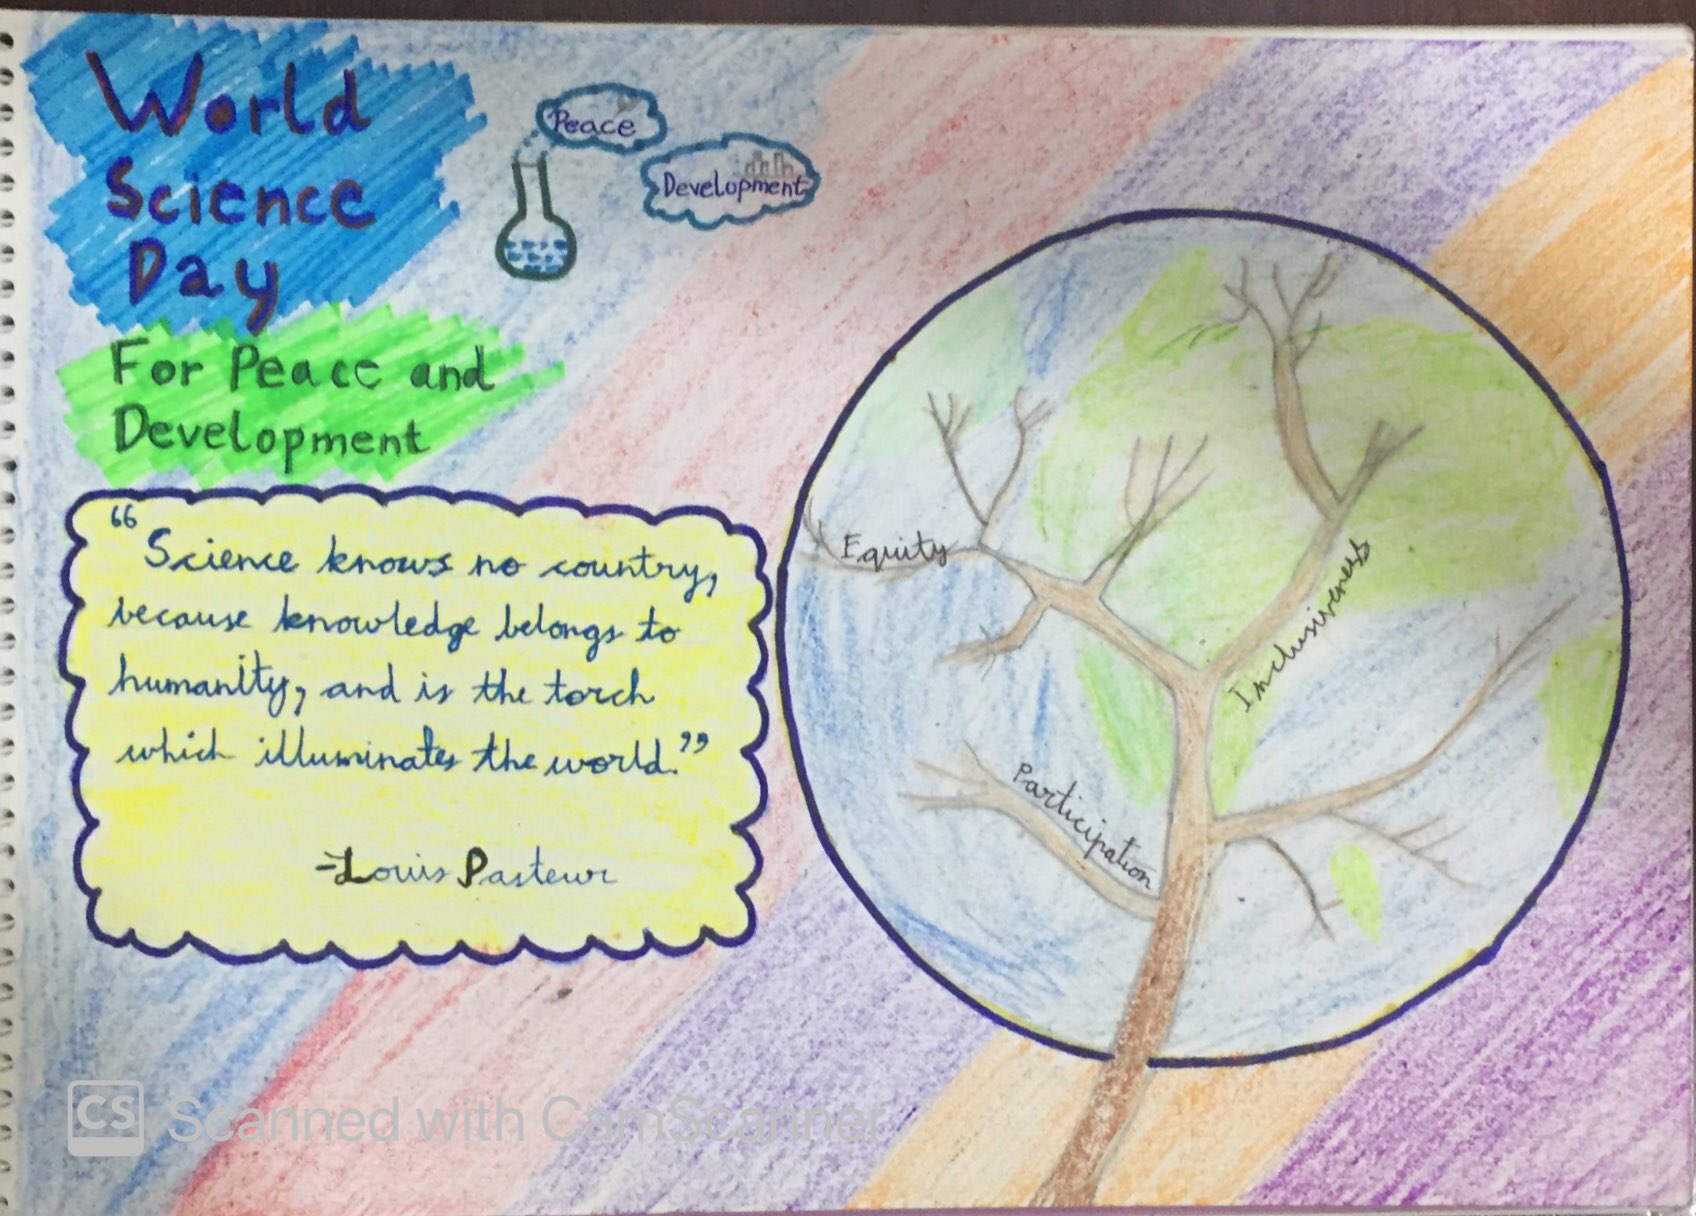 World
Science
Day
For Peace and
Development
Peace
Development
“Science knows no country,
because knowledge belongs to
humanity, and is the torch
which illuminates the world.”
-Louis Pasteur
Equity
Inclusiveness
Participation
CS Scanned with CamScanner